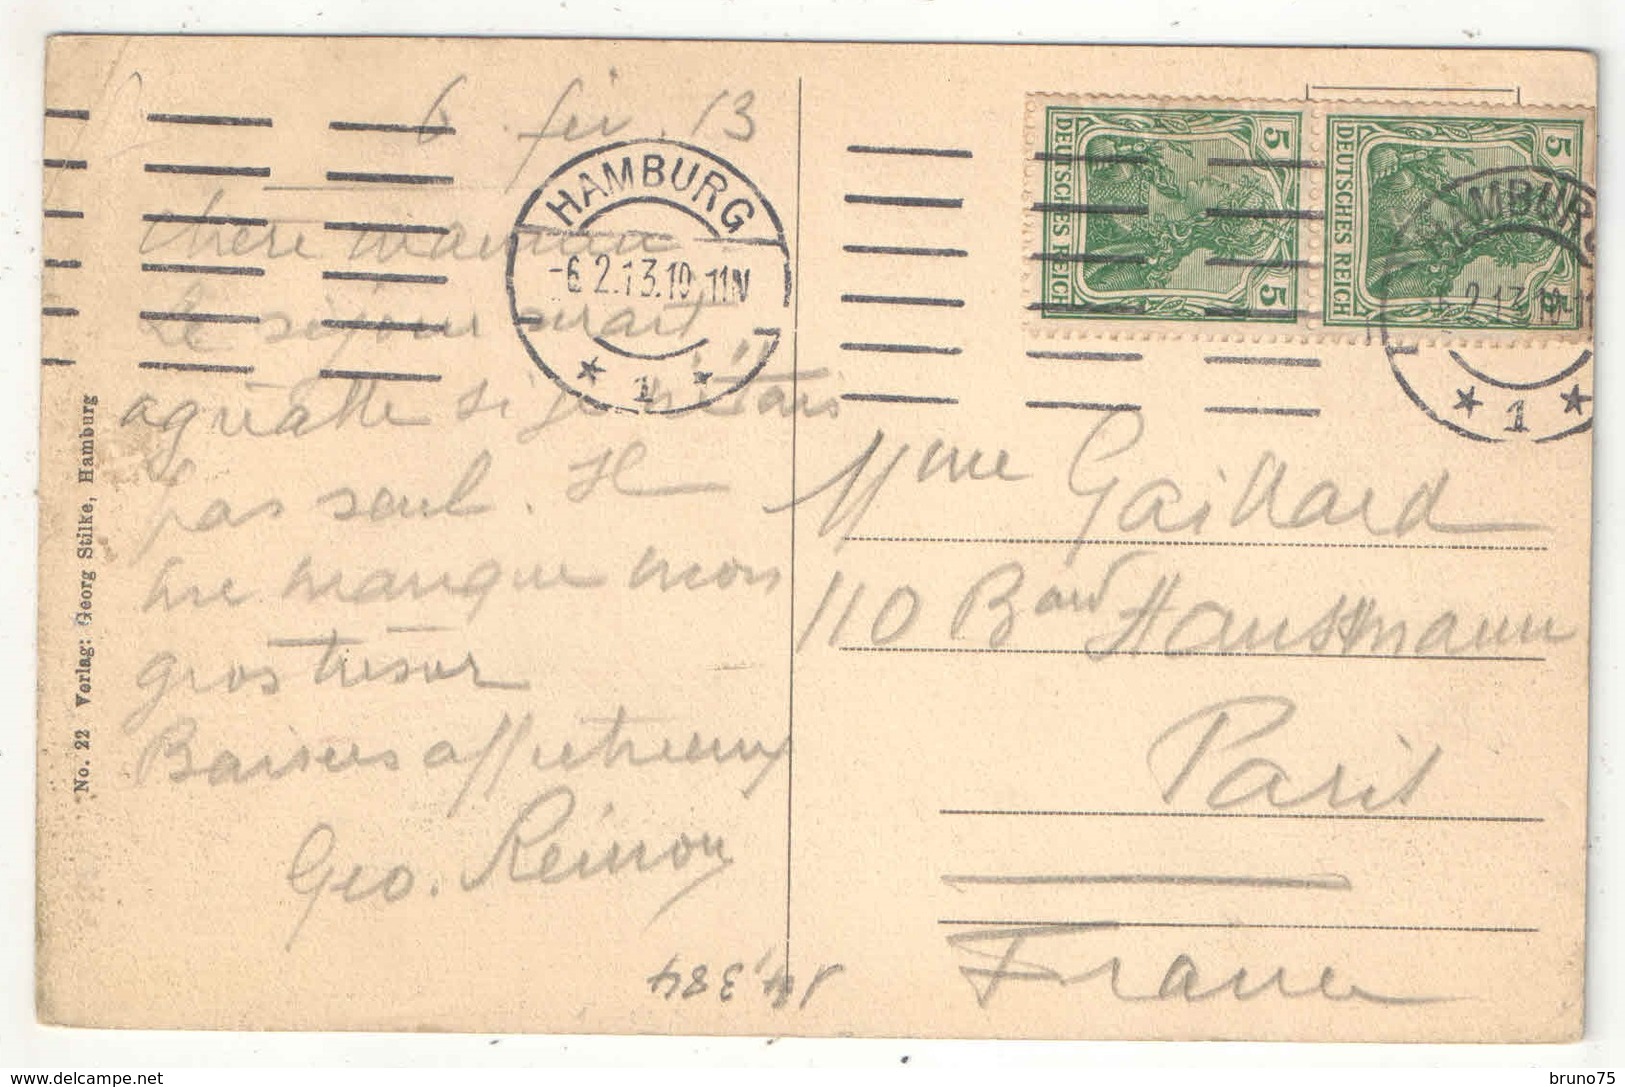 6 fév. 13
Chère maman
Le séjour serait
agréable si je n'étais
pas seul. Il
me manque mon
gros trésor
Baisers affectueux
Geo.
14,384
No. 22 Verlag: Georg Stilke, Hamburg
HAMBURG
-6.2.13.10-11N
* 1 *
DEUTSCHES REICH
5 5
DEUTSCHES REICH
5
HAMBURG
-6.2.13.10-11
* 1 *
Mme Gaillard
110 Bard Haussmann
Paris
France
delcampe.net
bruno75